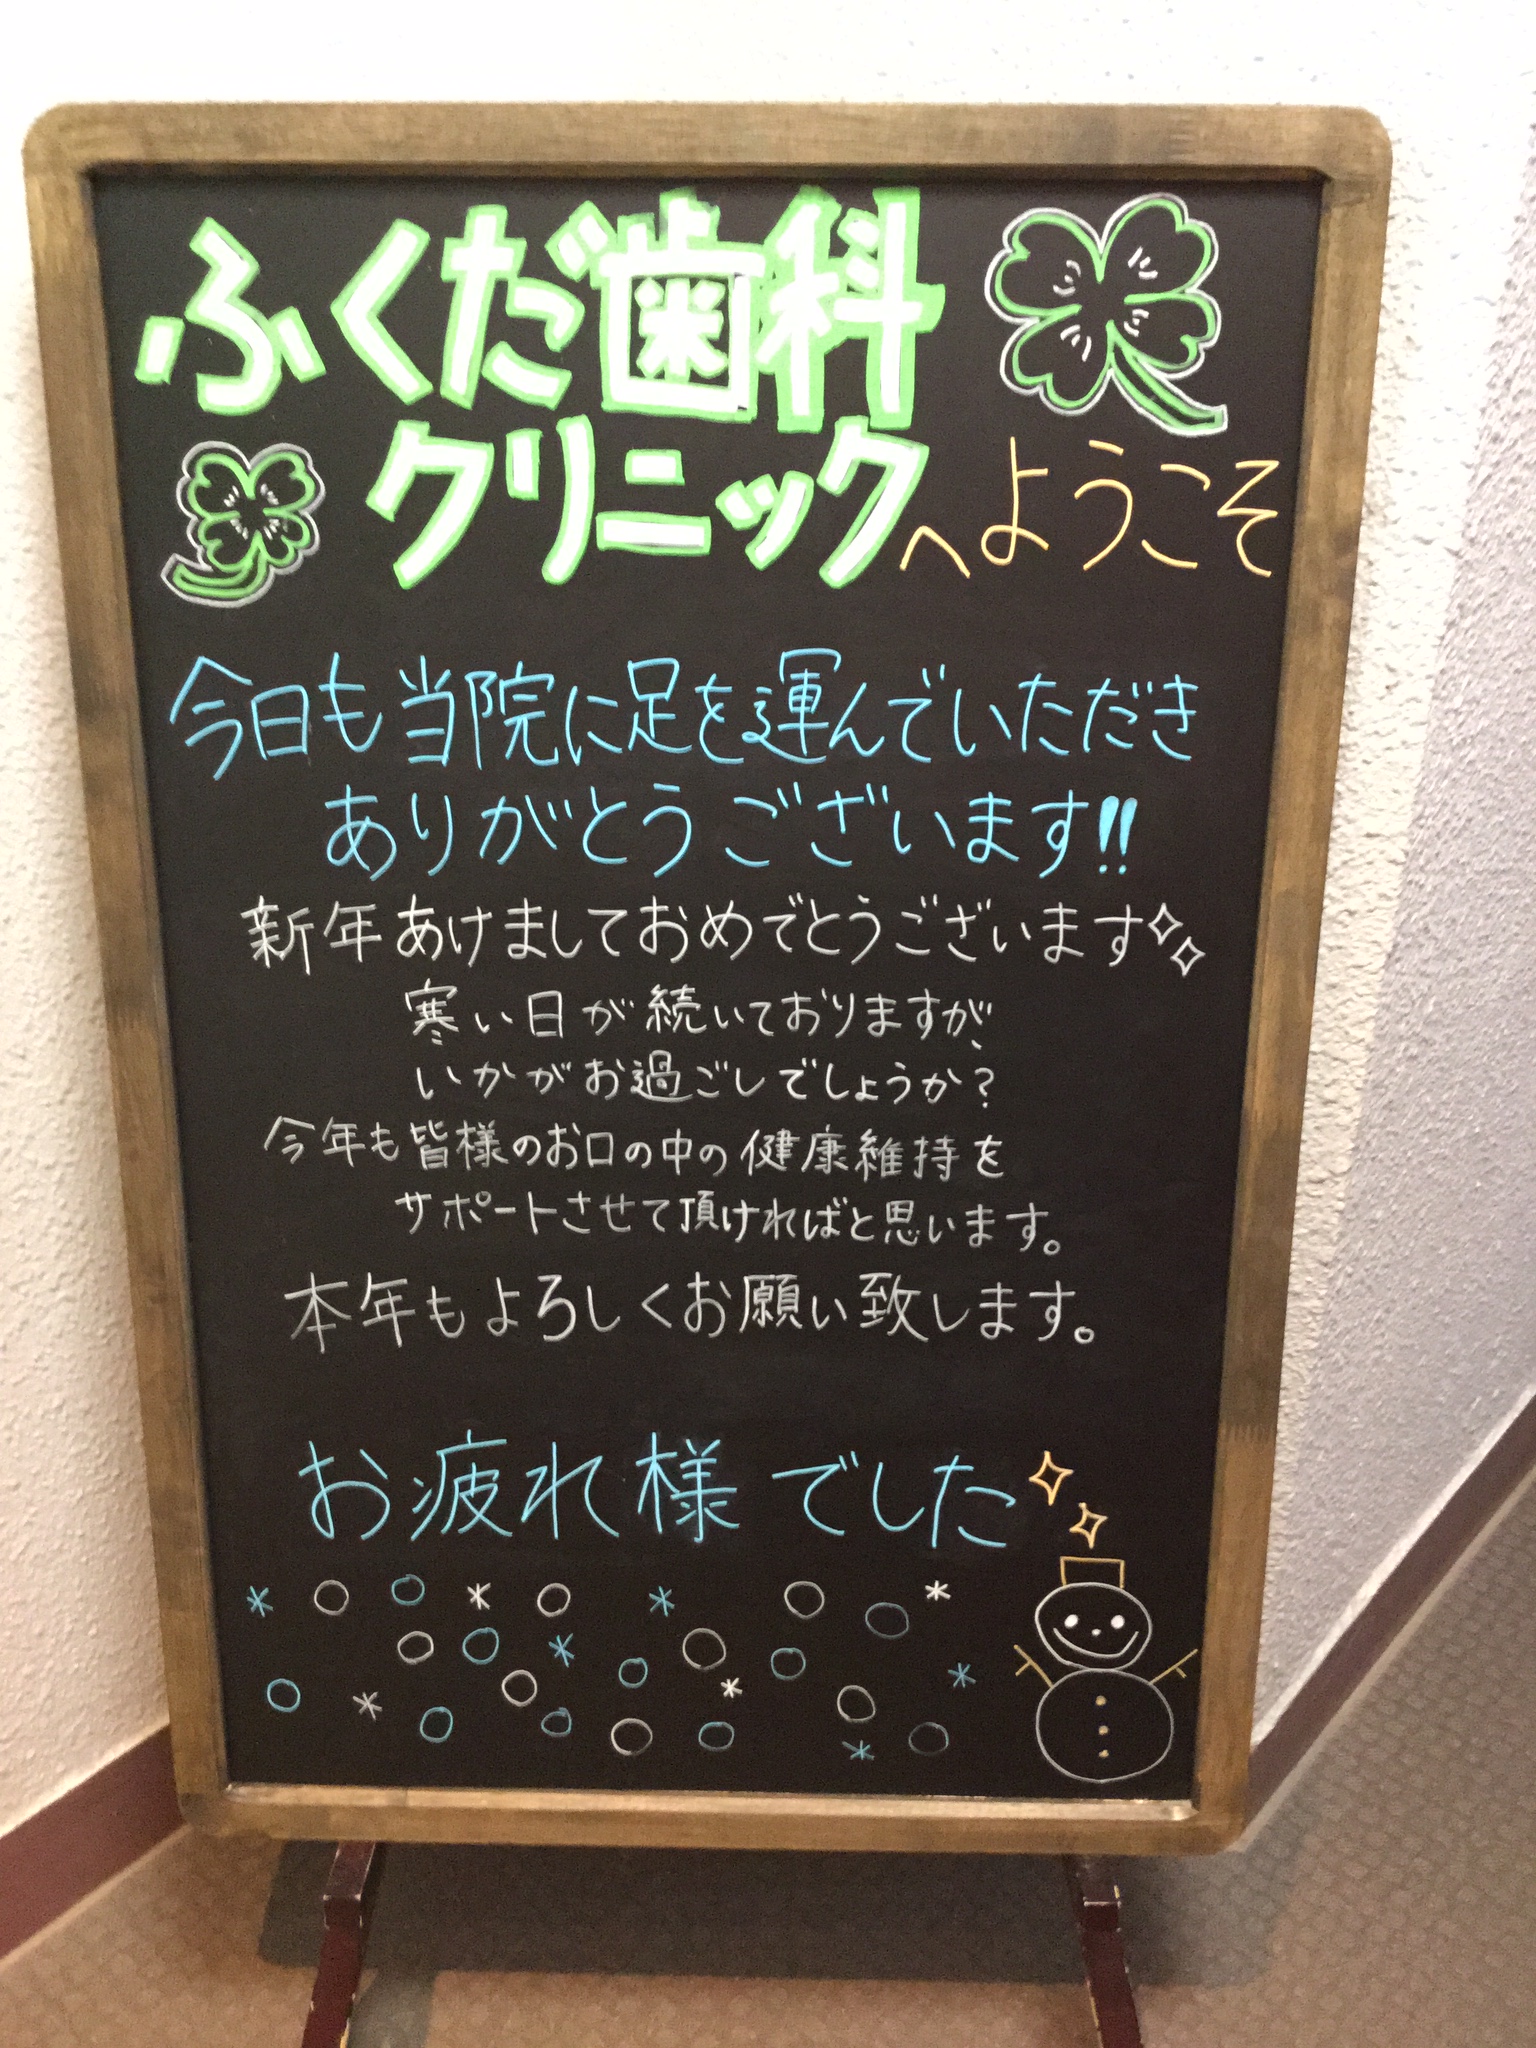 ふくだ歯科
クリニックへようこそ
今日も当院に足を運んでいただき
ありがとうございます!!
新年あけましておめでとうございます
寒い日が続いておりますが、
いかがお過ごしでしょうか?
今年も皆様のお口の中の健康維持を
サポートさせて頂ければと思います。
本年もよろしくお願い致します。
お疲れ様でした